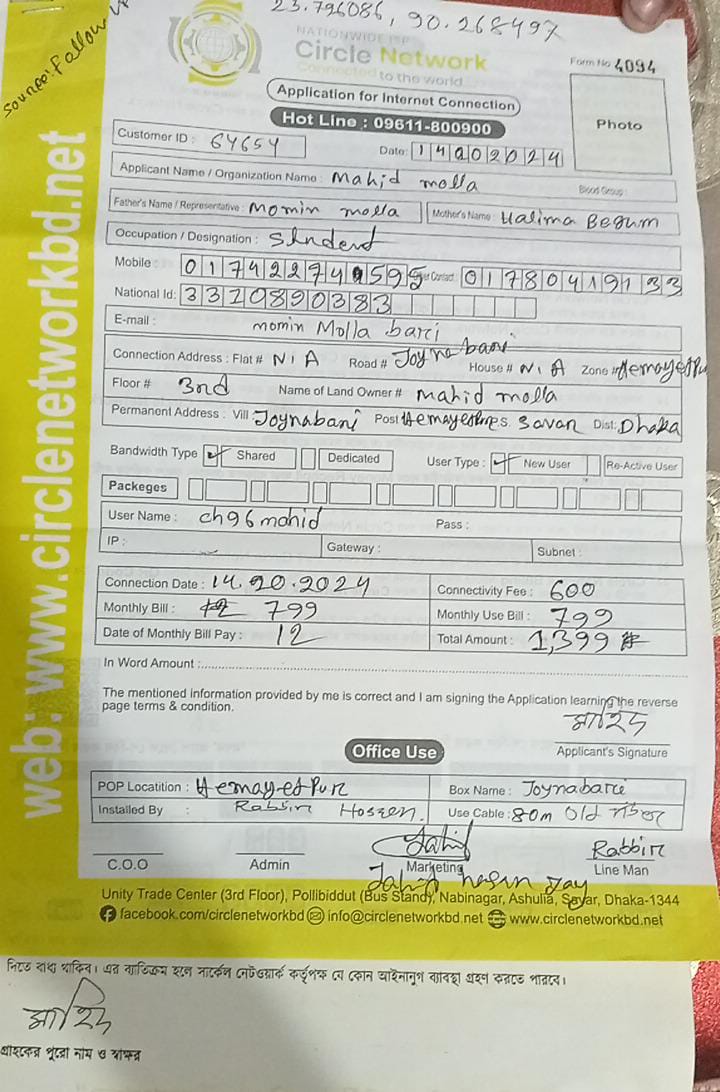 23.796086, 90.268497
Source: Fallow
NATIONWIDE ISP
Circle Network
Connected to the world
Form No 4094
Application for Internet Connection
Hot Line : 09611-800900
Photo
Customer ID : 64654
Date: 14102024
Applicant Name / Organization Name : Mahid molla
Blood Group :
Father's Name / Representative : Momin molla Mother's Name : Halima Begum
Occupation / Designation : Student
Mobile : Contact: 01780419133
National Id: 3320890383
E-mail :
momin Molla bari
Connection Address : Flat # N/A Road # Joynabari House # N/A Zone #
Floor # 3rd Name of Land Owner # Mahid molla
Permanent Address : Vill Joynabari Post P.S. Savar Dist: Dhaka
Bandwidth Type ✓ Shared Dedicated User Type : ✓ New User Re-Active User
Packeges
User Name : ch96mahid Pass :
IP : Gateway : Subnet :
Connection Date : 14.20.2024 Connectivity Fee : 600
Monthly Bill : 799 Monthly Use Bill : 799
Date of Monthly Bill Pay : 12 Total Amount : 1,399
In Word Amount :
The mentioned information provided by me is correct and I am signing the Application learning the reverse
page terms & condition.
মাহিদ
Applicant's Signature
Office Use
POP Locatition : Hemayetpur Box Name : Joynabari
Installed By : Rabbir Hossen. Use Cable : 80m Old
Rabbir
C.O.O Admin Marketing Line Man
Jahid hasan Jay
Unity Trade Center (3rd Floor), Pollibiddut (Bus Stand), Nabinagar, Ashulia, Savar, Dhaka-1344
facebook.com/circlenetworkbd info@circlenetworkbd.net www.circlenetworkbd.net
web: www.circlenetworkbd.net
দিতে বাধ্য থাকিব। এর ব্যতিক্রম হলে সার্কেল নেটওয়ার্ক কর্তৃপক্ষ যে কোন আইনানুগ ব্যবস্থা গ্রহণ করতে পারবে।
মাহিদ
গ্রাহকের পুরো নাম ও স্বাক্ষর